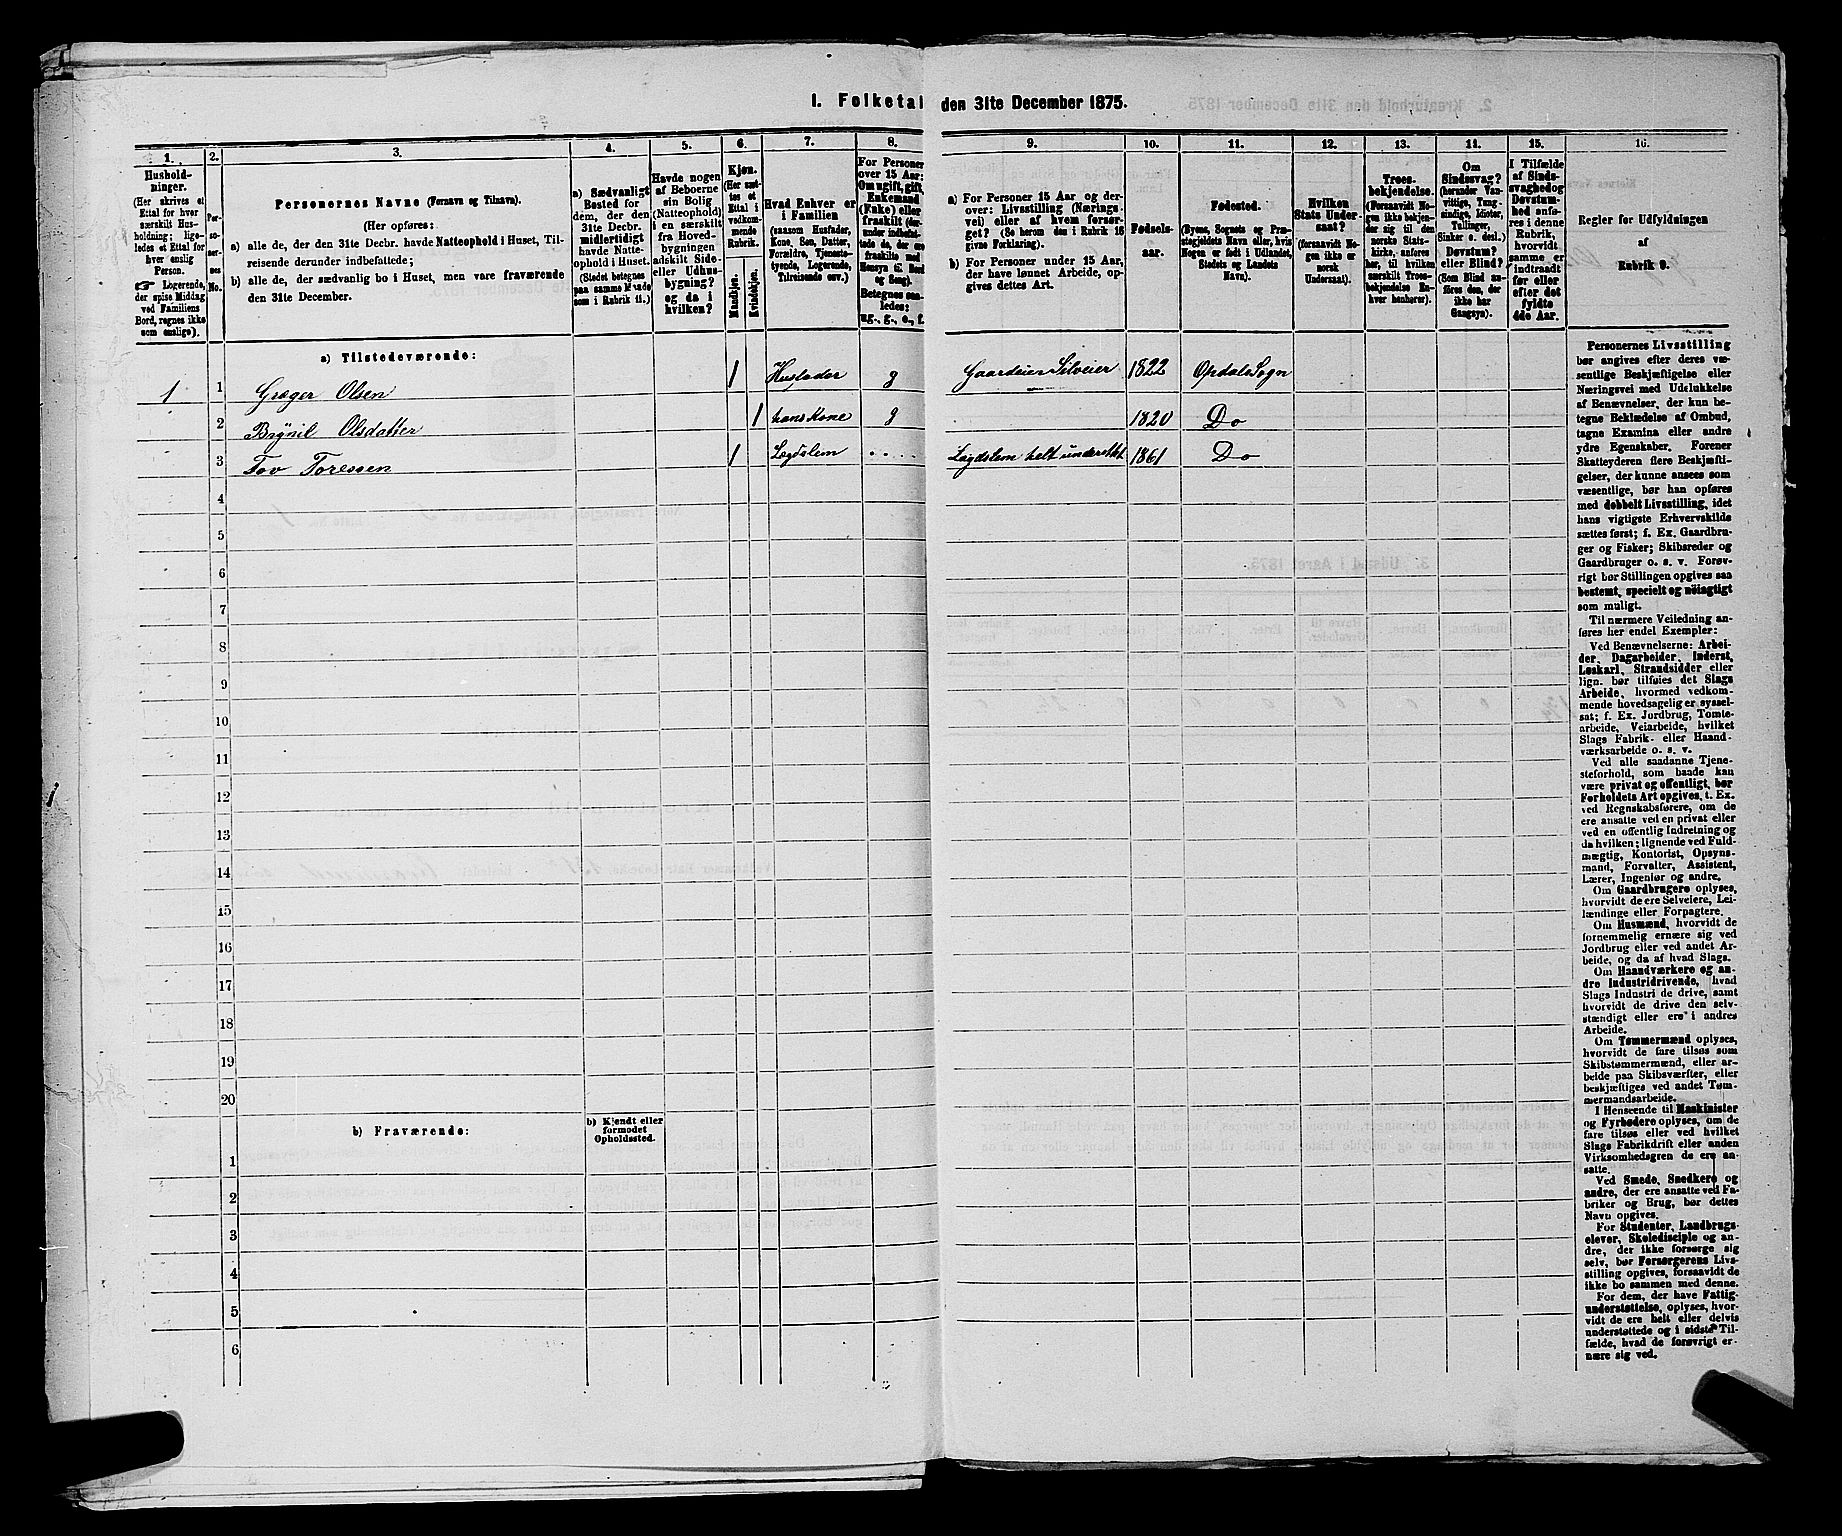 1. Folketal den 31te December 1875.
1.
2.
3.
4.
5.
6.
7.
8.
9.
10.
11.
12.
13.
11.
15.
16.
Hushold-
ninger.
(Her skrives et
Ettal for hver
særskilt Hus-
holdning; lige-
ledes et Ettal for
hver enslig
Person.
☛ Logerende,
der spise Middag
ved Familiens
Bord, regnes ikke
som enslige).
Per-
so-
ner-
nes
No.
Personernes Navne (Fornavn og Tilnavn).
(Her opføres:
a) alle de, der den 31te Decbr. havde Natteophold i Huset, Til-
reisende derunder indbefattede;
b) alle de, der sædvanlig bo i Huset, men vare fraværende
den 31te December.
a) Sædvanligt
Bosted for
dem, der den
31te Decbr.
midlertidigt
havde Natte-
ophold i Huset.
(Stedet betegnes
paa samme Maade
som i Rubrik 11.)
Havde nogen
af Beboerne
sin Bolig
(Natteophold)
i en særskilt
fra Hoved-
bygningen
adskilt Side-
eller Udhus-
bygning?
og da i
hvilken?
Kjøn.
(Her sæt-
tes et
Ettal i
vedkom-
mende
Rubrik.
Mandkjøn.
Kvindekjøn.
Hvad Enhver er
i Familien
(saasom Husfader,
Kone, Søn, Datter,
Forældre, Tjeneste-
tyende, Logerende,
Tilreisende osv.)
For Personer
over 15 Aar:
Om ugift, gift,
Enkemand
(Enke) eller
fraskilt der-
under indbefat-
tede de, der ere
fraskilte med
Hensyn til Bord
og Seng).
Betegnes saa-
ledes:
ug., g., e., f.
a) For Personer 15 Aar og der-
over: Livsstilling (Nærings-
vei) eller af hvem forsør-
get? (Se herom den i Rubrik 16
givne Forklaring).
b) For Personer under 15 Aar,
der have lønnet Arbeide, op-
gives dettes Art.
Fødsels-
aar.
Fødested.
(Byens, Sognets og Præ-
stegjeldets Navn eller, hvis
Nogen er født i Udlandet,
Stedets og Landets
Navn).
Hvilken
Stats Under-
saat?
(forsaavidt No-
gen ikke er
norsk
Undersaat).
Troes-
bekjendelse.
(Forsaavidt No-
gen ikke bekjen-
der sig til den
norske Stats-
kirke, anføres
her, til hvilken
særskilt Troes-
bekjendelse En-
hver henhører).
Om
Sindssvag?
(herunder Van-
vittige, Tung-
sindige, Idioter,
Tullinger,
Sinker o. desl.)
Døvstum?
eller Blind?
(Som Blind an-
føres den, der
ikke har
Gangsyn).
I Tilfælde
af Sinds-
svaghed og
Døvstum-
hed anfø-
res i denne
Rubrik,
hvorvidt
samme er
indtraadt
før eller
efter det
fyldte
4de Aar.
Regler for Udfyldningen
af
Rubrik 9.
a) Tilstedeværende:
1 1 Græger Olsen 1 Husfader g Gaardeier Selveier 1822 Opdals Sogn
2 Brynil Olsdatter 1 hans Kone g 1820 Do
3 Tov Toressen 1 Lægdslem Lægdslem helt understøt. 1861 Do
4
5
6
7
8
9
10
11
12
13
14
15
16
17
18
19
20
b) Fraværende:
b) Kjendt eller
formodet
Opholdssted.
1
2
3
4
5
6
Personernes Livsstilling
bør angives efter deres væ-
sentlige Beskjæftigelse eller
Næringsvei med Udelukkelse
af Benævnelser, der kun be-
tegne Beklædelse af Ombud,
tagne Examina eller andre
ydre Egenskaber. Forener
Skatteyderen flere Beskjæfti-
gelser, der kunne ansees som
væsentlige, bør han opføres
med dobbelt Livsstilling, idet
hans vigtigste Erhvervskilde
sættes først; f. Ex. Gaardbru-
ger og Fisker; Skibsreder og
Gaardbruger o. s. v. Forøv-
rigt bør Stillingen opgives saa
bestemt, specielt og nöiagtigt
som muligt.
Til nærmere Veiledning an-
føres her endel Exempler:
Ved Benævnelserne: Arbei-
der, Dagarbeider, Inderst,
Løskarl, Strandsidder eller
lign. bør tilføies det Slags
Arbeide, hvormed vedkom-
mende hovedsagelig er syssel-
sat; f. Ex. Jordbrug, Tomte-
arbeide, Veiarbeide, hvilket
Slags Fabrik- eller Haand-
værksarbeide o. s. v.
Ved alle saadanne Tjene-
steforhold, som baade kan
være privat og offentligt, bør
Forholdets Art opgives, f. Ex.
ved Regnskabsførere, om de
ere ansatte ved en privat eller
ved en offentlig Indretning og
da hvilken; lignende ved Fuld-
mægtig, Kontorist, Opsyns-
mand, Forvalter, Assistent,
Lærer, Ingeniør og andre.
Om Gaardbrugere oplyses,
hvorvidt de ere Selveiere, Lei-
lændinge eller Forpagtere.
Om Husmænd, hvorvidt de
fornemmelig ernære sig ved
Jordbrug eller ved andet Ar-
beide, og da af hvad Slags.
Om Haandværkere og an-
dre Industridrivende, hvad
Slags Industri de drive, samt
hvorvidt de drive den selv-
stændigt eller ere i andres
Arbeide.
Om Tømmermænd oplyses,
hvorvidt de fare tilsøs som
Skibstømmermænd, eller ar-
beide paa Skibsværfter, eller
beskjæftiges ved andet Tøm-
mermandsarbeide.
I Henseende til Maskinister
og Fyrbødere oplyses, om de
fare tilsøs eller ved hvilket
Slags Fabrikdrift eller anden
Virksomhedsgren de ere an-
satte.
Ved Smede, Snedkere og
andre, der ere ansatte ved Fa-
briker og Brug, bør dettes
Navn opgives.
For Studenter, Landbrugs-
elever, Skoledisciple og an-
dre, der ikke forsørge sig
selv, bør Forsørgerens Livs-
stilling opgives, forsaavidt de
ikke bo sammen med denne.
For dem, der have Fattig-
understøttelse, oplyses, hvor-
vidt de ere helt eller delvis
understøttede og i sidste Til-
fælde, hvad de forøvrigt er-
nære sig ved.